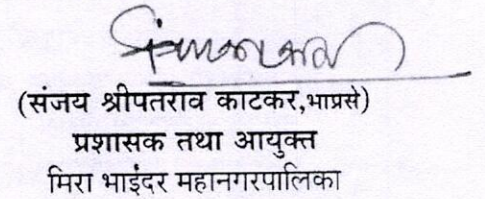 (संजय श्रीपतराव काटकर,भाप्रसे)
प्रशासक तथा आयुक्त
मिरा भाईंदर महानगरपालिका